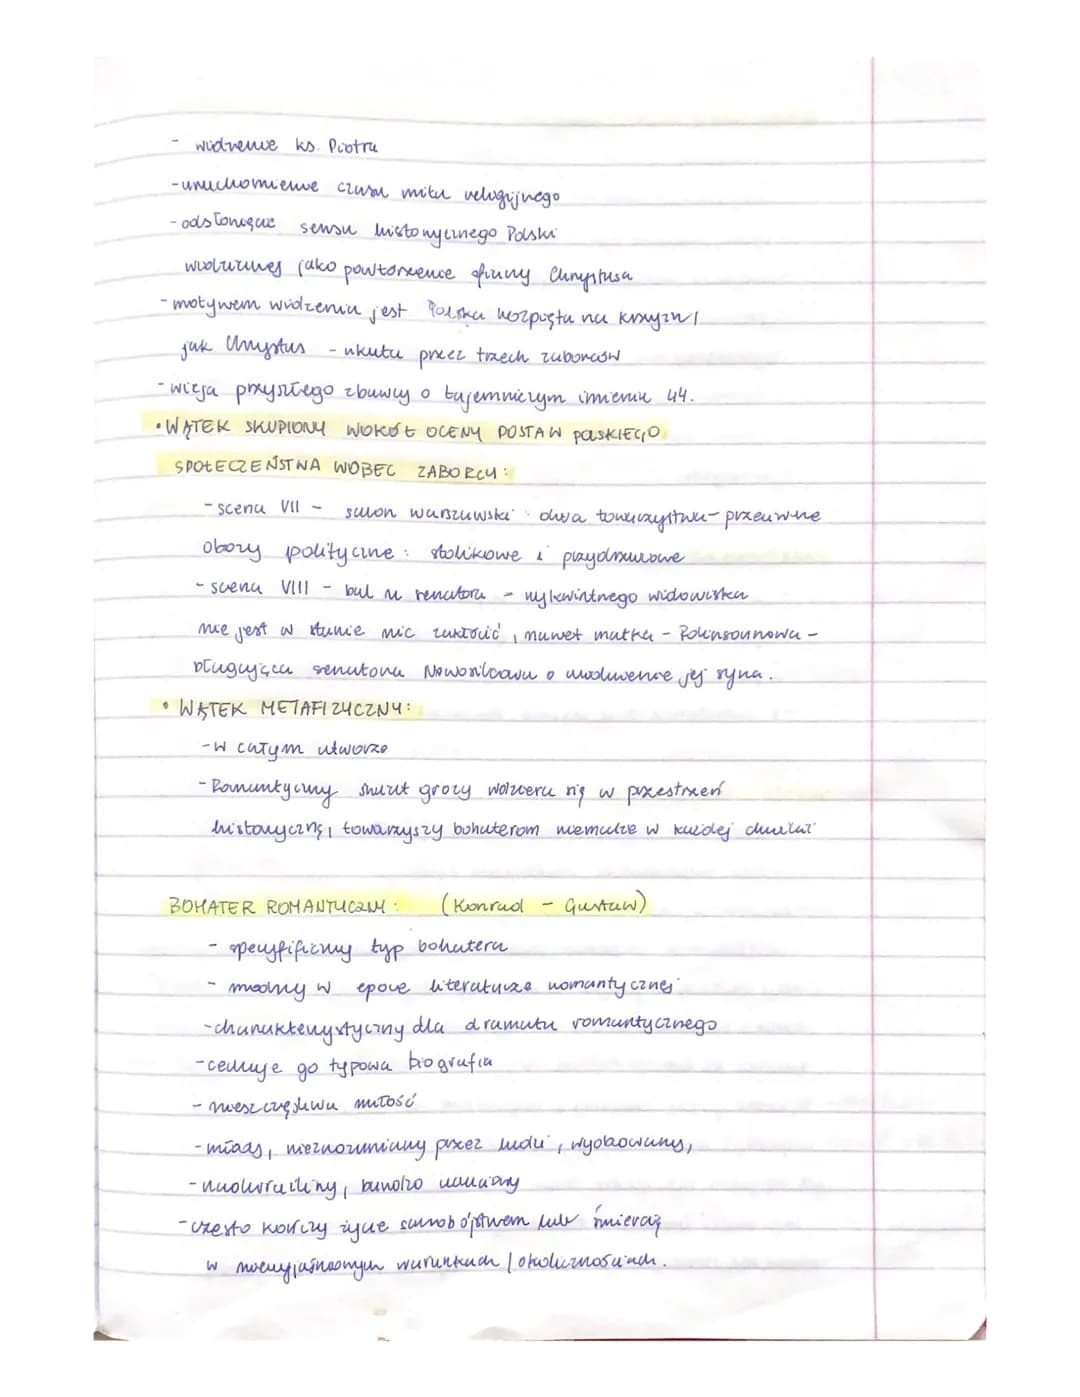 - widzenie ks. Piotra
- uruchomienie czasu mitu religijnego
- odsłonięcie sensu historycznego Polski
widzianej jako powtórzenie ofiary Chrystusa
- motywem widzenia jest Polska rozpięta na krzyżu,
jak Chrystus - ukuta przez trzech zaborców
- wizja przyszłego zbawcy o tajemniczym imieniu 44.
• WĄTEK SKUPIONY WOKÓŁ OCENY POSTAW POLSKIEGO
SPOŁECZEŃSTWA WOBEC ZABORCY:
- scena VII - salon warszawski dwa towarzystwa - przeciwne
obozy polityczne: stolikowe i przydrzwiowe
- scena VIII - bal u senatora - wykwintnego widowiska
nie jest w stanie nic zakłócić, nawet matka - Rolinsonowa -
błagająca senatora Nowosilcowa o uwolnienie jej syna.
• WĄTEK METAFIZYCZNY:
- w całym utworze
- Romantyczny grozy wdziera się w przestrzeń
historyczną, towarzyszy bohaterom niemalże w każdej chwili
BOHATER ROMANTYCZNY: (Konrad - Gustaw)
- specyficzny typ bohatera
- modny w epoce literaturze romantycznej
- charakterystyczny dla dramatu romantycznego
- cechuje go typowa biografia
- nieszczęśliwa miłość
- młody, niezrozumiany przez ludzi, wyobcowany,
- nadwrażliwy, bardzo
- często kończy życie samobójstwem lub śmiercią
w niewyjaśnionych warunkach / okolicznościach.